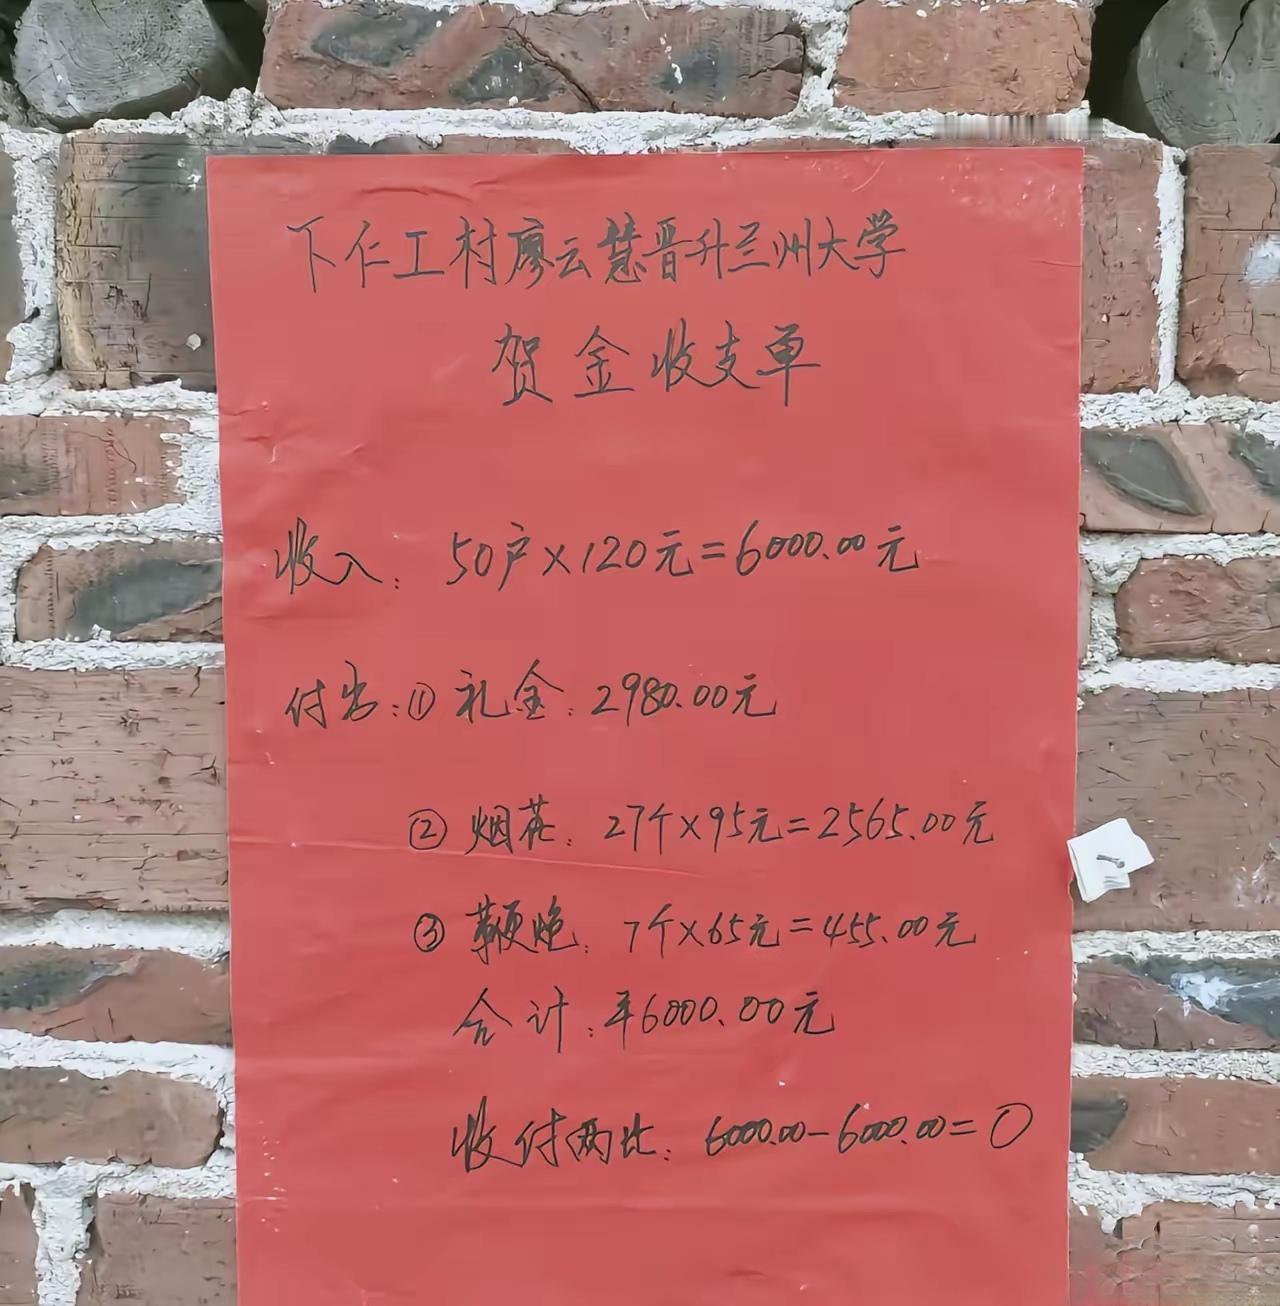 下仁工村廖云慧晋升兰州大学
贺金收支单
收入：50户×120元=6000.00元
付出：①礼金：2980.00元
②烟花：27个×95元=2565.00元
③鞭炮：7个×65元=455.00元
合计：¥6000.00元
收付两比：6000.00-6000.00=0